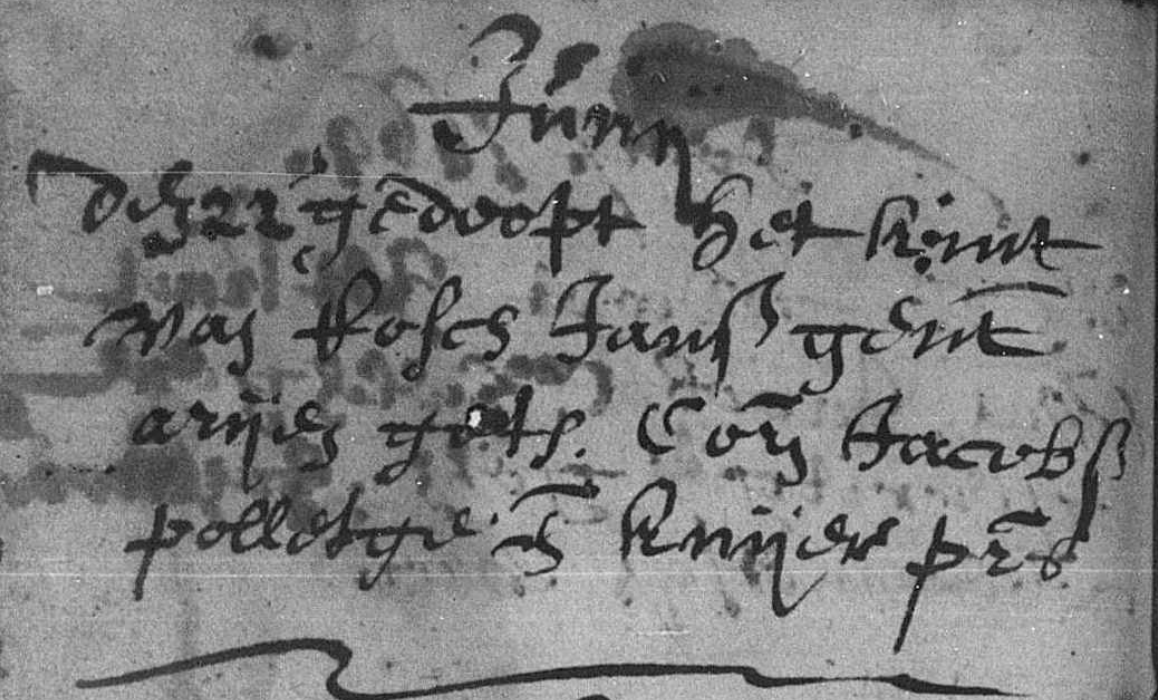 Junij
den 22 gedoopt het kint
van Focch Jansz gent
arijen get. Corn Jacobsz
polletge en knijer prs